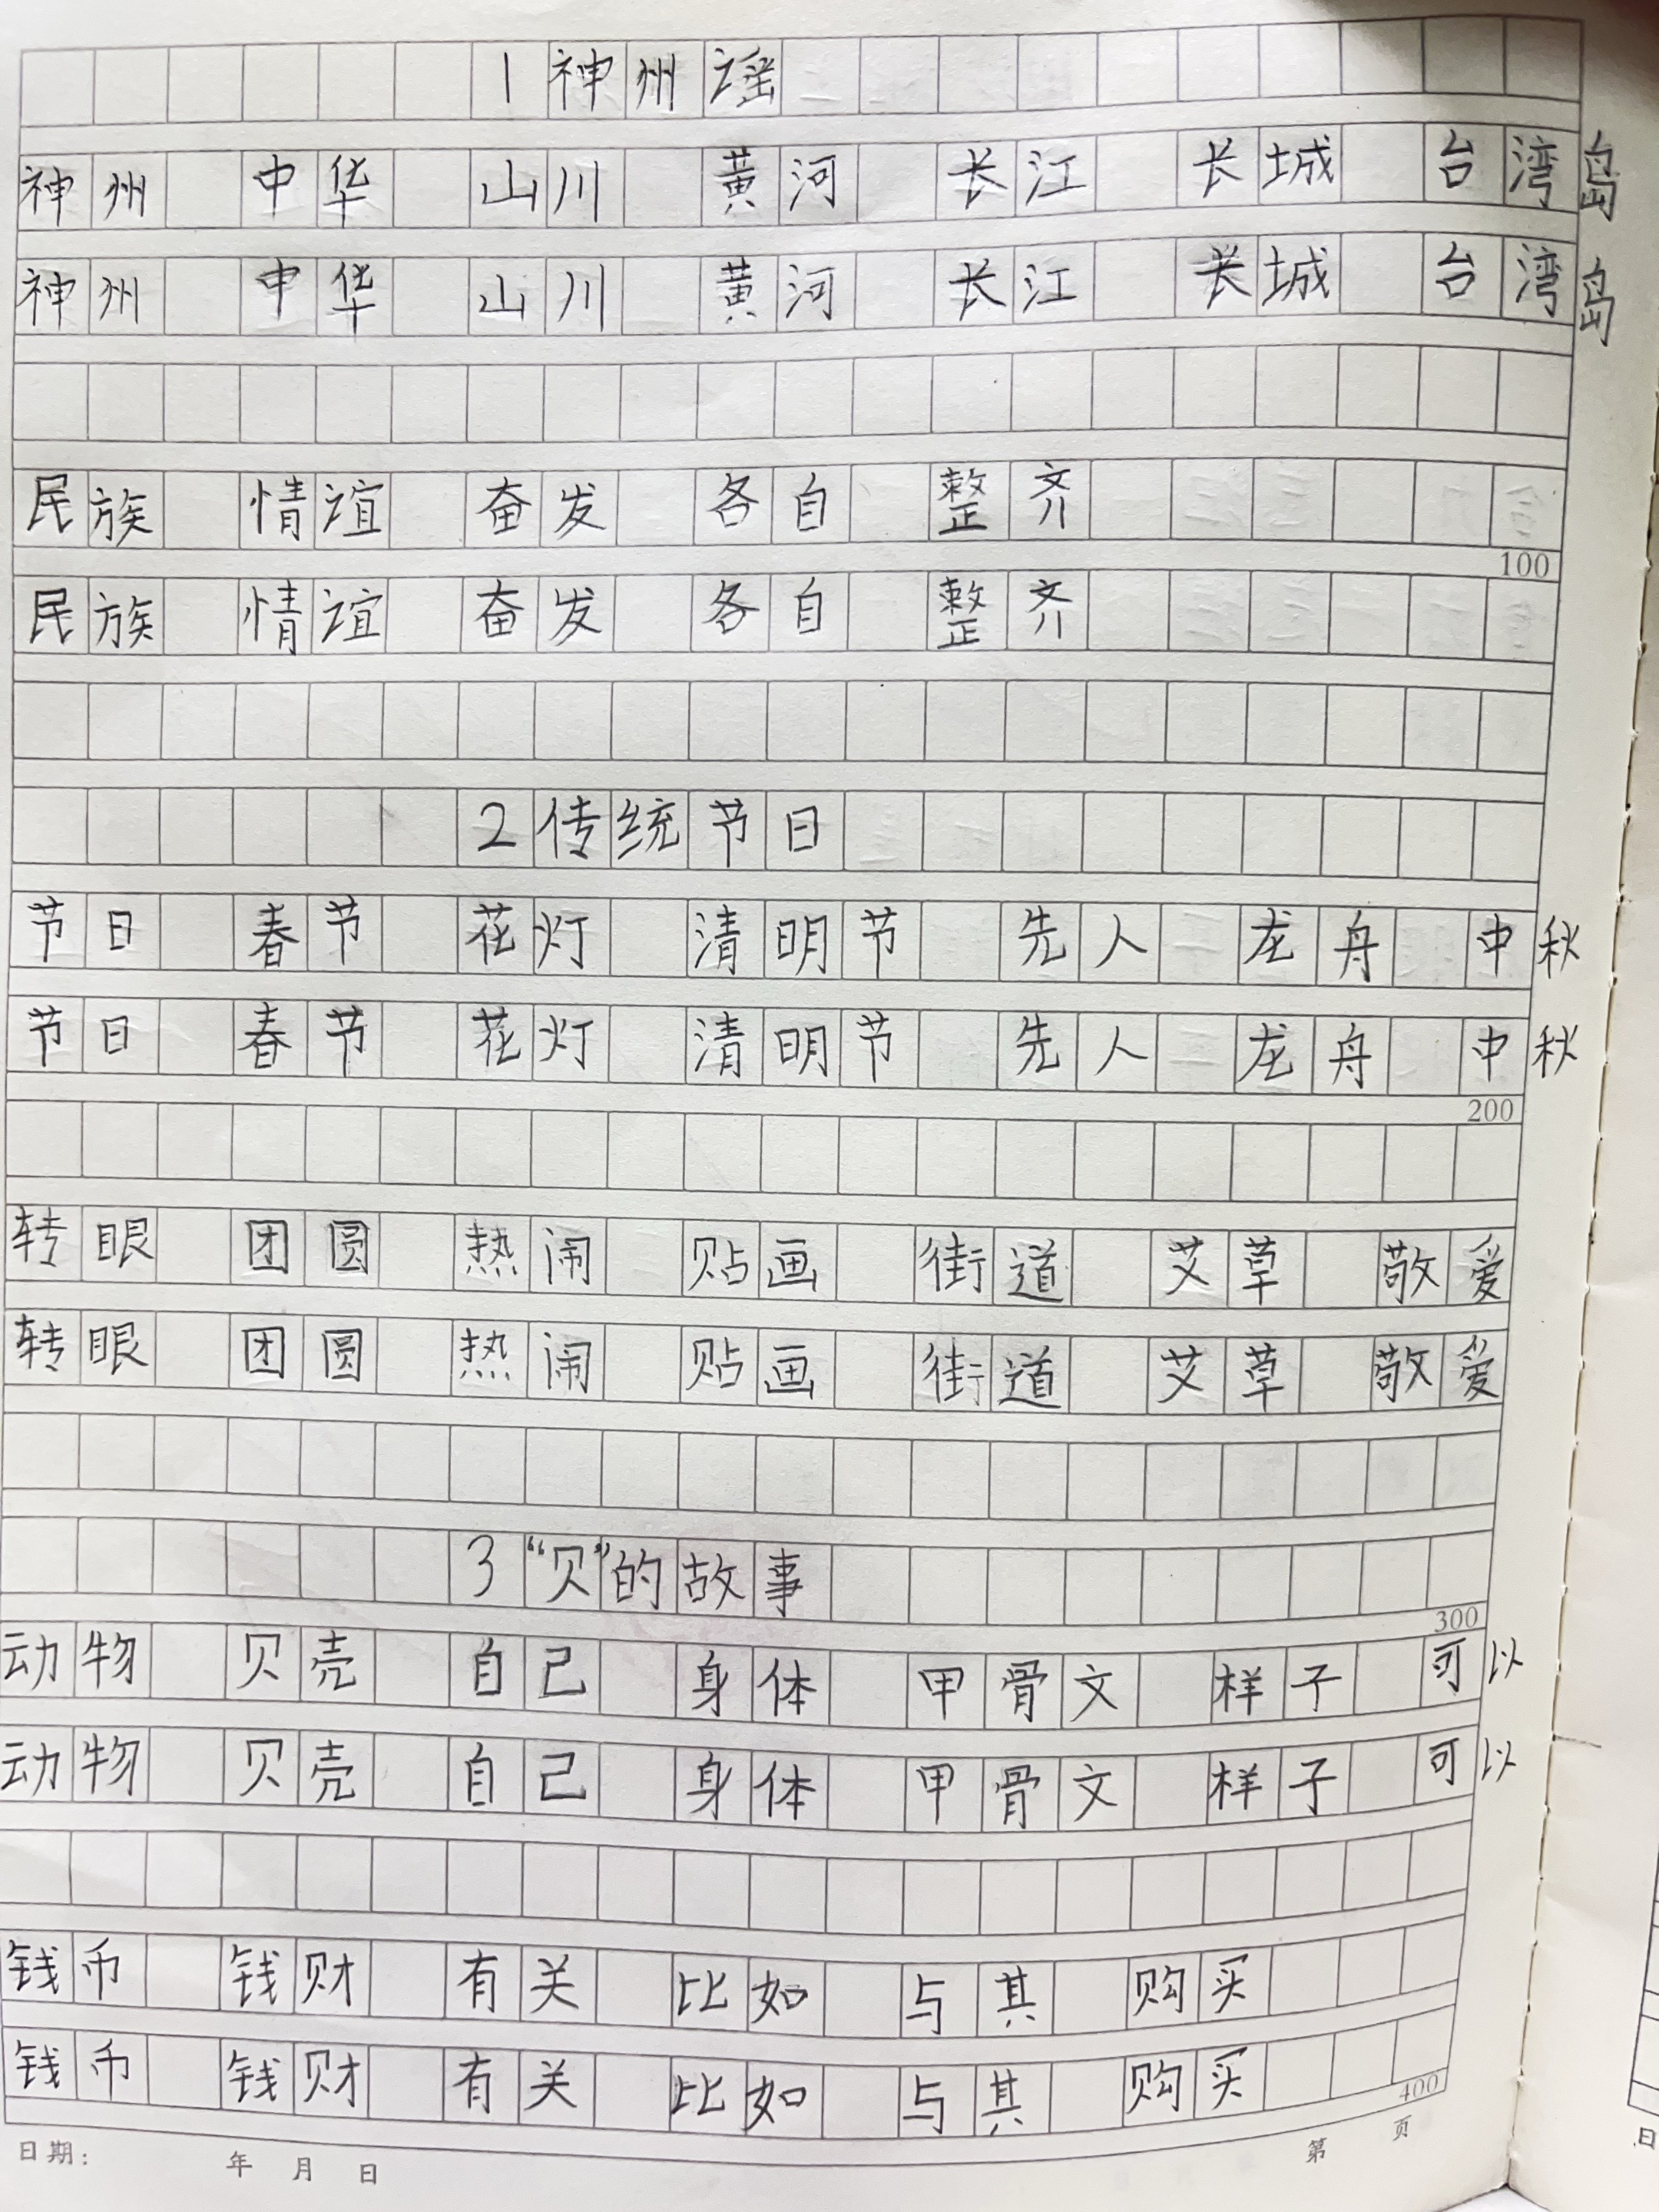 1神州谣
神州 中华 山川 黄河 长江 长城 台湾岛
神州 中华 山川 黄河 长江 长城 台湾岛
民族 情谊 奋发 各自 整齐
100
民族 情谊 奋发 各自 整齐
2传统节日
节日 春节 花灯 清明节 先人 龙舟 中秋
节日 春节 花灯 清明节 先人 龙舟 中秋
200
转眼 团圆 热闹 贴画 街道 艾草 敬爱
转眼 团圆 热闹 贴画 街道 艾草 敬爱
3“贝”的故事
300
动物 贝壳 自己 身体 甲骨文 样子 可以
动物 贝壳 自己 身体 甲骨文 样子 可以
钱币 钱财 有关 比如 与其 购买
钱币 钱财 有关 比如 与其 购买
400
日期: 年 月 日 第 页
日